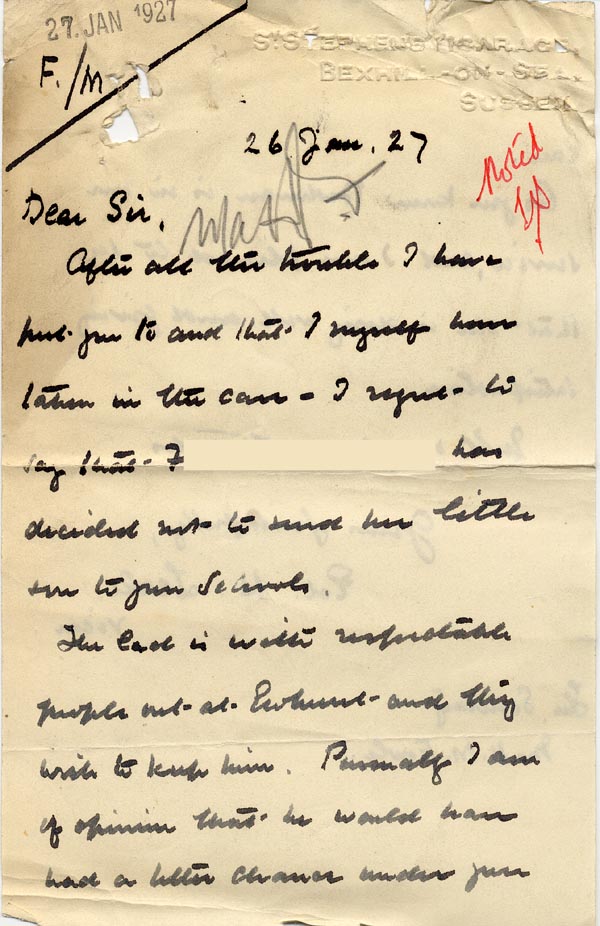 27. JAN 1927
F./M
ST STEPHEN'S VICARAGE,
BEXHILL-ON-SEA,
SUSSEX.
26 Jan. 27
Noted
Dear Sir,
After all the trouble I have
put you to and that I myself have
taken in the case – I regret to
say that F has
decided not to send her little
son to your Schools.
The lad is with respectable
people out at Ewhurst and they
wish to keep him. Personally I am
of opinion that he would have
had a better chance under your